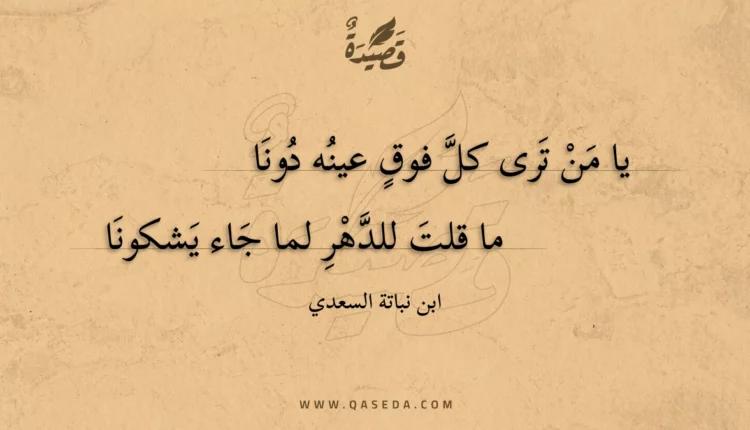 قَصِيْدَةٌ
يا مَنْ تَرَى كلَّ فوقٍ عينُه دُونَا
ما قلتَ للدَّهْرِ لما جَاء يَشكونَا
ابن نباتة السعدي
WWW.QASEDA.COM